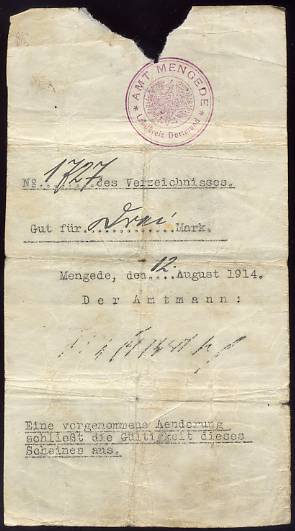 * AMT MENGEDE *
Landkreis Dortmund
No. 1727 des Verzeichnisses.
Gut für Drei Mark.
Mengede, den 12 August 1914.
Der Amtmann:
Eine vorgenommene Aenderung
schließt die Gültigkeit dieses
Scheines aus.